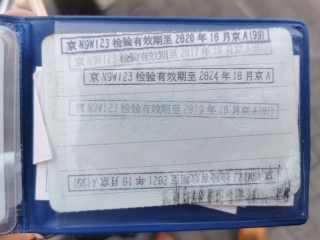 京N9W123检验有效期至2020年10月京A(99)
京N9W123检验有效期至2017年10月京A(99)
京N9W123检验有效期至2024年10月京A
京N9W123检验有效期至2019年10月京A(99)
京N9W123检验有效期至2021年10月京A(99)